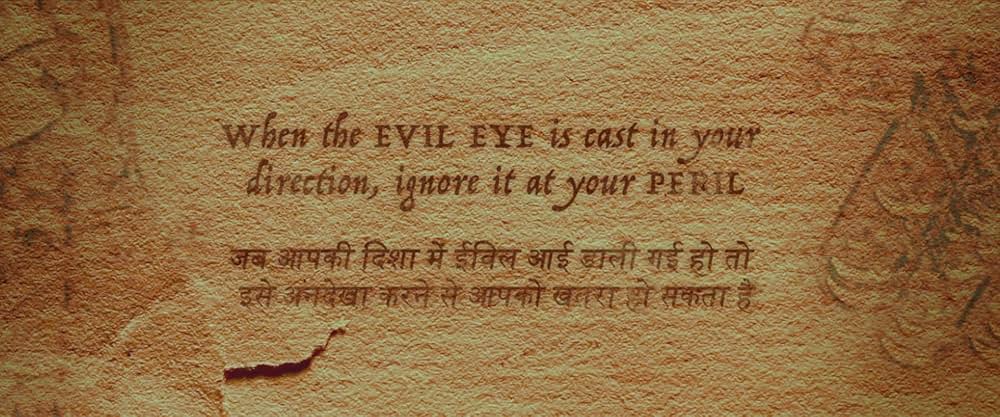 When the EVIL EYE is cast in your
direction, ignore it at your PERIL
जब आपकी दिशा में ईविल आई डाली गई हो तो
इसे अनदेखा करने से आपको खतरा हो सकता है